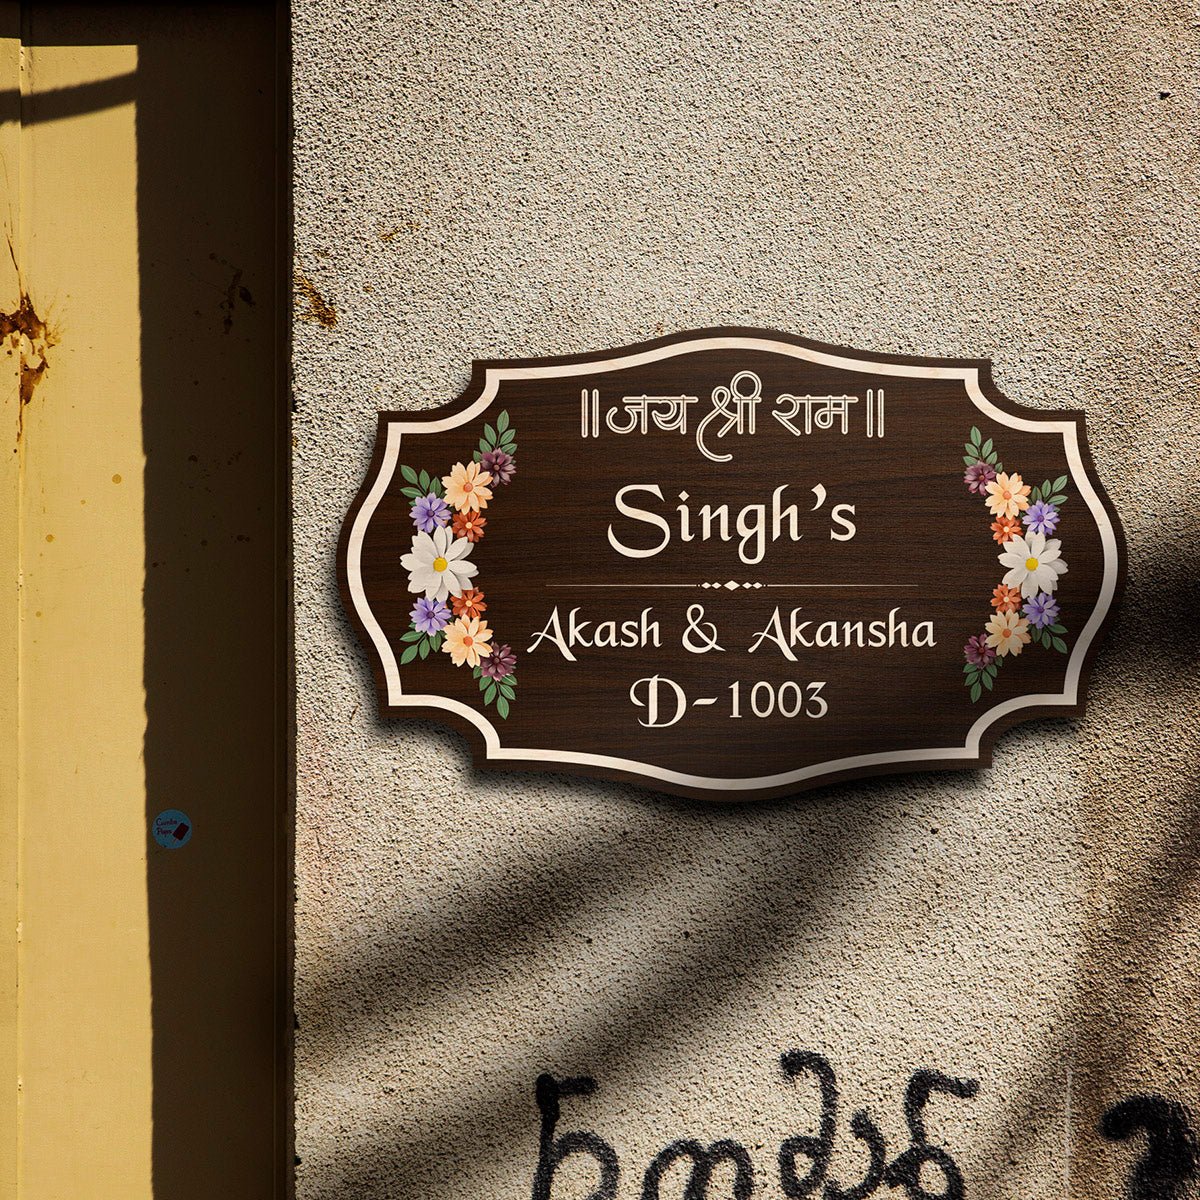 ॥ जय श्री राम ॥
Singh's
Akash & Akansha
D-1003